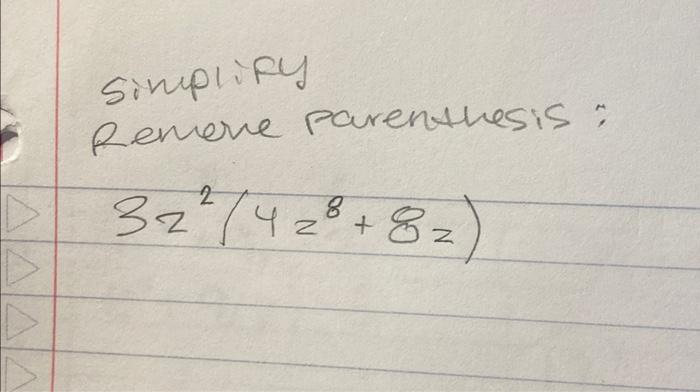 Simplify
Remove parenthesis:
3z²(4z⁸+8z)